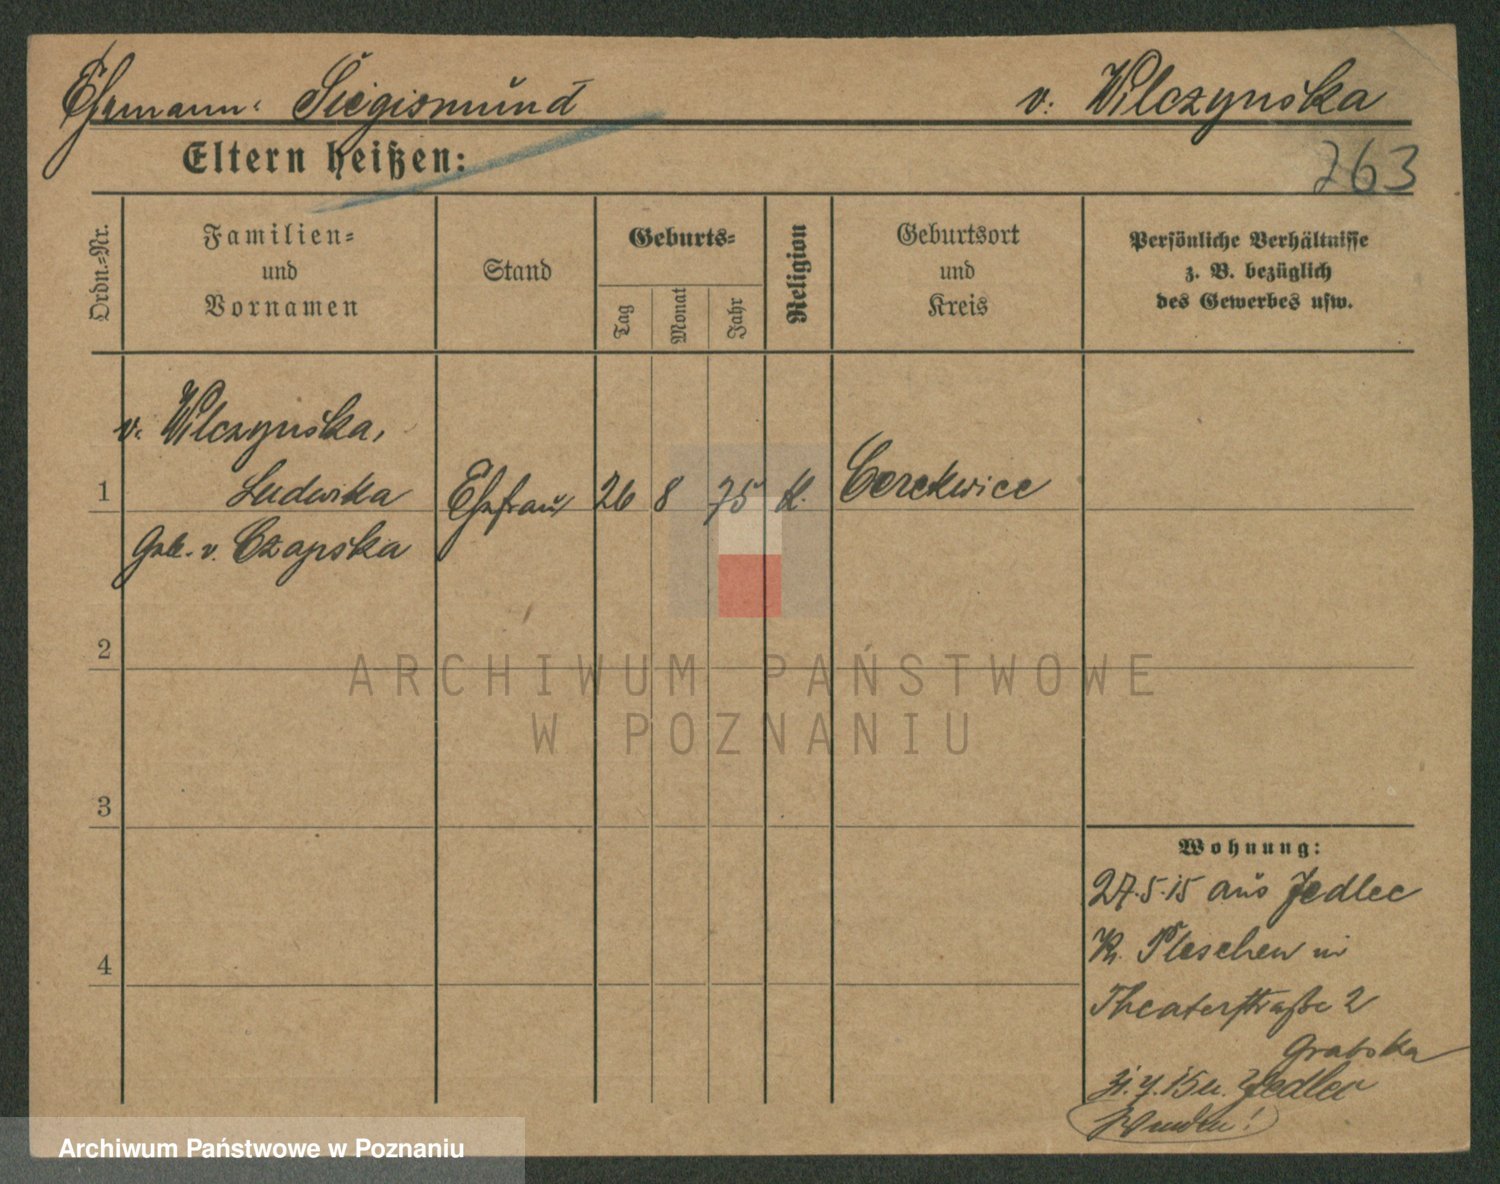 Ehemann: Siegismund v. Wilczynska
Eltern heißen:
263
Ordn.-Nr.
Familien-
und
Vornamen
Stand
Geburts-
Tag
Monat
Jahr
Religion
Geburtsort
und
Kreis
Persönliche Verhältnisse
z. B. bezüglich
des Gewerbes usw.
v. Wilczynska,
1 Ludwika Ehefrau 26 8 75 K. Cerekwice
Geb. v. Czapska
2
3
4
Wohnung:
27.5.15 aus Jedlec
Kr. Pleschen in
Theaterstraße 2
Grabska
31.7.15 n. Jedlec
Wenden!
ARCHIWUM PAŃSTWOWE
W POZNANIU
Archiwum Państwowe w Poznaniu